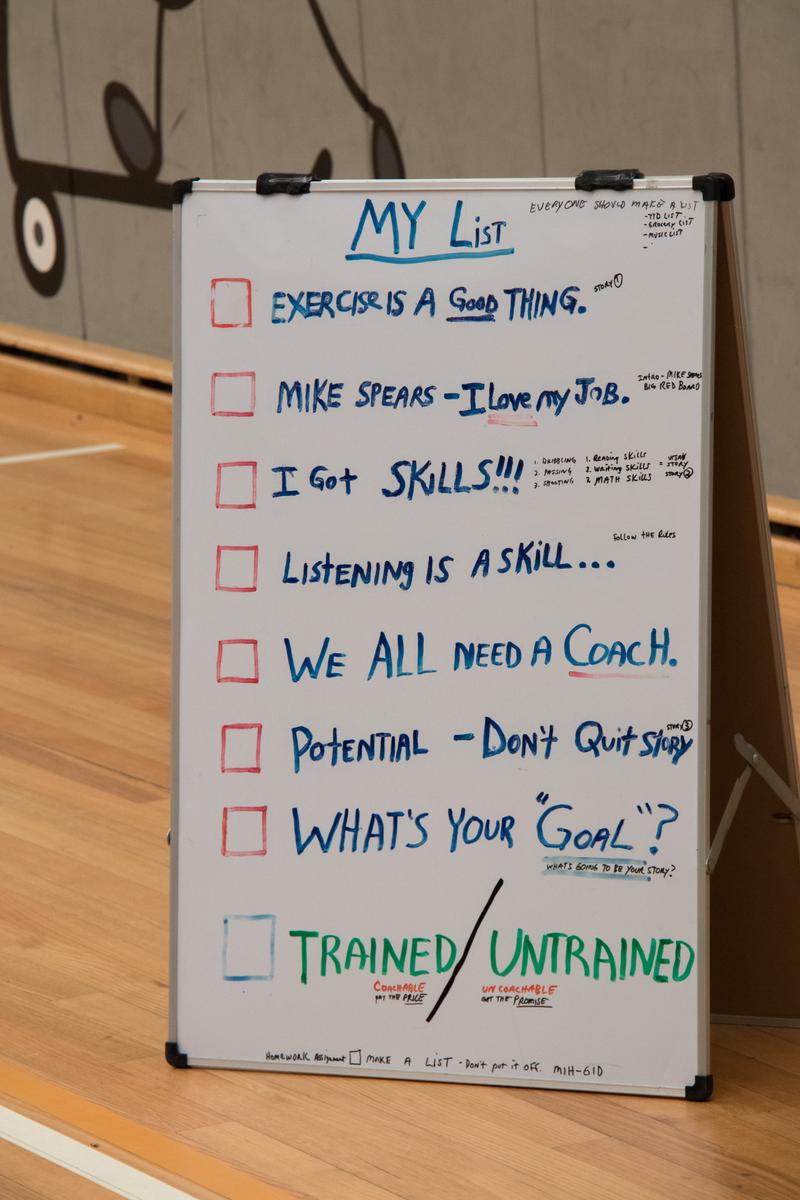 MY LIST
EVERYONE SHOULD MAKE A LIST
- TTD LIST
- GROCERY LIST
- MUSIC LIST
-
EXERCISE IS A GOOD THING.
STORY 1
MIKE SPEARS - I Love my JOB.
INTRO - MIKE SPEARS
BIG RED BOARD
I GOT SKILLS!!!
1. DRIBBLING
2. PASSING
3. SHOOTING
1. Reading SKills
2. Writing SKills
3. MATH SKills
=
STORY
STORY 2
LISTENING IS A SKILL...
FOLLOW THE RULES
WE ALL NEED A COACH.
POTENTIAL - DON'T QUIT STORY
STORY 3
WHAT'S YOUR "GOAL"?
WHAT'S GOING TO BE YOUR STORY?
TRAINED / UNTRAINED
COACHABLE
PAY THE PRICE
UNCOACHABLE
GET THE PROMISE
HOMEWORK Assignment MAKE A LIST - DON'T put it off. MIH-GID